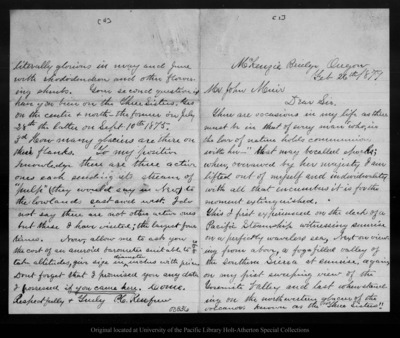 (4)
literally glorious in may and june
with rhododendron and other flower-
ing shrubs. Your second question,
have you been on the Three Sisters. Yes
on the centre & north. the former on July
28th the latter on Sept 10th 1875.
3d How many glaciers are there on
their flanks To my positive
knowledge there are three active
ones each sending all stream of
"pulp" (they would say in N.) to
the lowlands east and west. I do
not say there are not other active ones
but these I have visited; the largest four
Now allow me to ask you
the cost of an aneroid barometer suitable to
take altitudes, give size diameter in inches with price.
Dont forget that I promised you any data
I possessed if you came here. Do come.
Respectfully & Truly
(1)
McKenzie Bridge, Oregon
26th 1877
Mr John Muir
Dear Sir.
There are occasions in my life as there
must be in that of every man who, in
the love of nature holds communion
with her" that may be called epochs;
when, conversed by her majesty I am
lifted out of myself and individuality
with all that encumbers it is for the
moment extinguished.
This I first experienced on the deck of a
Pacific Steamship witnessing sunrise
on a perfectly waveless sea, next on view-
ing from above, a fog filled valley of
the southern Sierra at sunrise, again
on my first sweeping view of the
Yosemite Valley and last when stand-
ing on the northwestern glacier of the
volcanoes known as the "Three Sisters".
Original located at University of the Pacific Library Holt-Atherton Special Collections